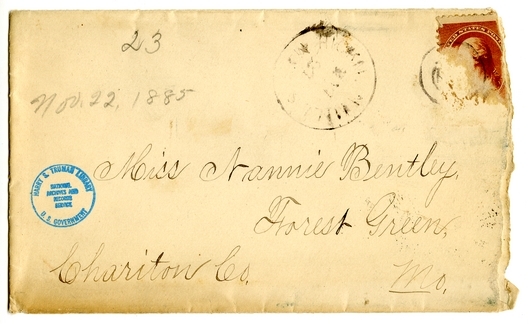 23
Nov. 22, 1885
UNITED STATES POST
HARRY S. TRUMAN LIBRARY
NATIONAL
ARCHIVES AND
RECORDS
SERVICE
U.S. GOVERNMENT
Miss Nannie Bentley,
Forest Green,
Chariton Co.
Mo.